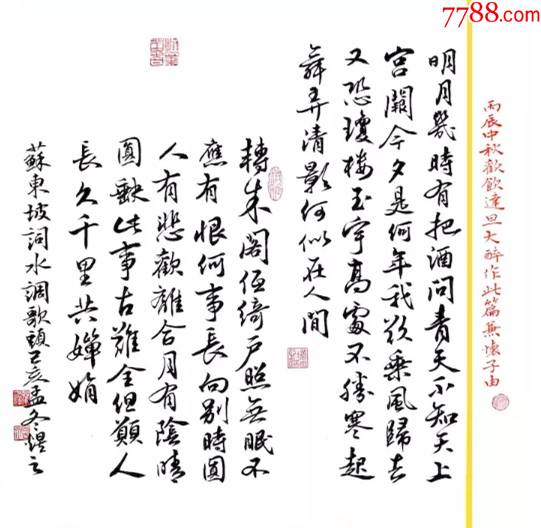 7788.com
丙辰中秋歡飲達旦大醉作此篇兼懷子由
明月幾時有把酒問青天不知天上
宮闕今夕是何年我欲乘風歸去
又恐瓊樓玉宇高處不勝寒起
舞弄清影何似在人間
轉朱閣低綺戶照無眠不
應有恨何事長向別時圓
人有悲歡離合月有陰晴
圓缺此事古難全但願人
長久千里共嬋娟
蘇東坡詞水調歌頭己亥孟冬煜之